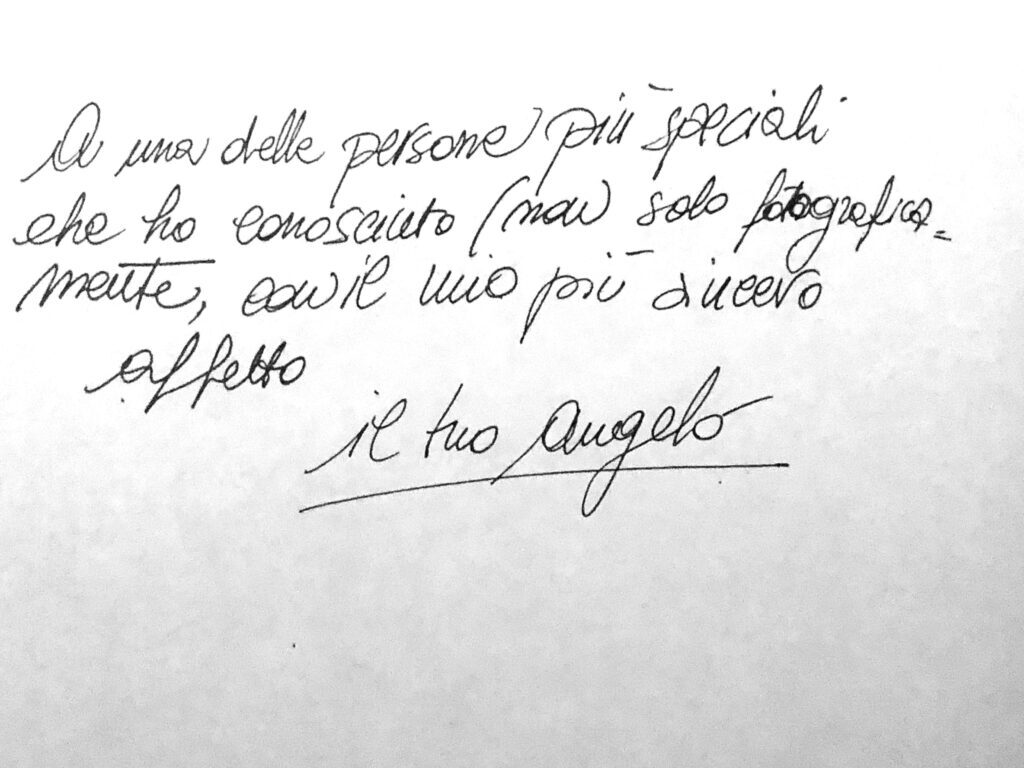 A una delle persone più speciali
che ho conosciuto (non solo fotografica=
mente, con il mio più sincero
affetto
il tuo Angelo